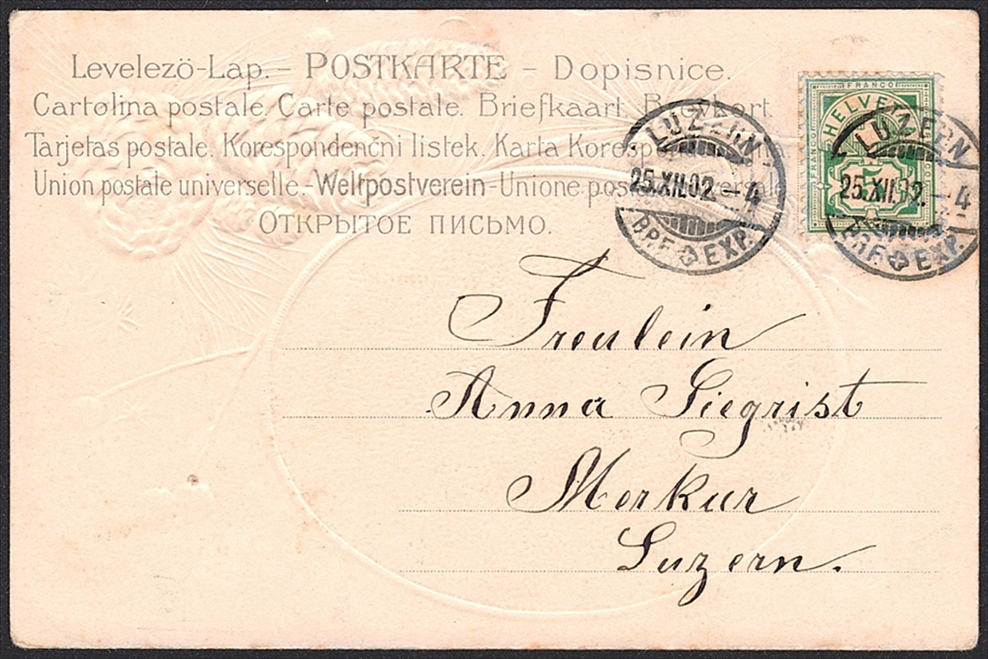 Levelező-Lap. – POSTKARTE – Dopisnice.
Cartolina postale. Carte postale. Briefkaart.
Tarjetas postale. Korespondenční listek. Karta
Union postale universelle.-Weltpostverein-Unione
ОТКРЫТОЕ ПИСЬМО.
LUZERN
25.XII.02.–4
BRF. EXP.
FRANCO
HELVETIA
FRANCO
5
LUZERN
25.XII.02.–4
BRF. EXP.
Freulein
Anna Siegrist
Merkur
Luzern.